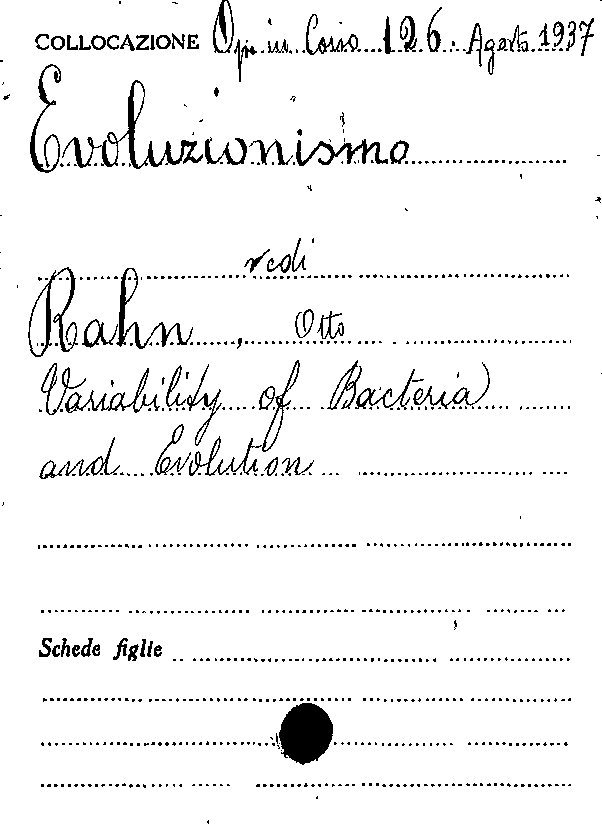 COLLOCAZIONE Op. in Corso 126. Agosto 1937
Evoluzionismo
vedi
Rahn, Otto
Variability of Bacteria
and Evolution
Schede figlie